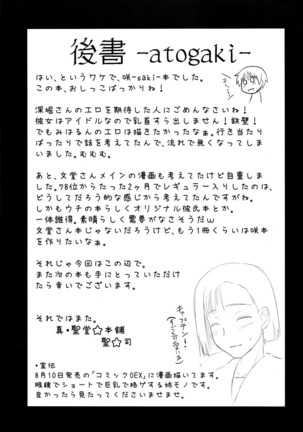 後書 -atogaki-
はい、というワケで、咲-saki-本でした。
この本、おしっこばっかりね！
深堀さんのエロを期待した人にごめんなさいね！
彼女はアイドルなので乳首すら出しません！鉄壁！
でもみはるんのエロは描きたかったなぁ。行き当たり
ばったりで話を考えてたんで、流れで無くなってしま
いました。むむむ。
あと、文堂さんメインの漫画も考えてたけど自重しま
した。78位からたった2ヶ月でレギュラー入りしたのは、
どうしてだろう的な感じから考えてたんですがね。
しかもウチの本らしくオリジナル彼氏本とか。
一体誰得。素晴らしく需要がなさそうだw
文堂さん本じゃないだろうけど、もう1冊くらいは咲本
を作りたいなぁ。
それじゃ今回はこの辺で。
また次の本も手にとっていただけ
たら幸いでございます。
それではまた。
真・聖堂☆本舗
聖☆司
キャプテン！
・宣伝
8月10日発売の「コミック0EX」に漫画描いてます。
眼鏡でショートで巨乳で格ゲする姉モノです。
良かったら見たってくださいませませ。